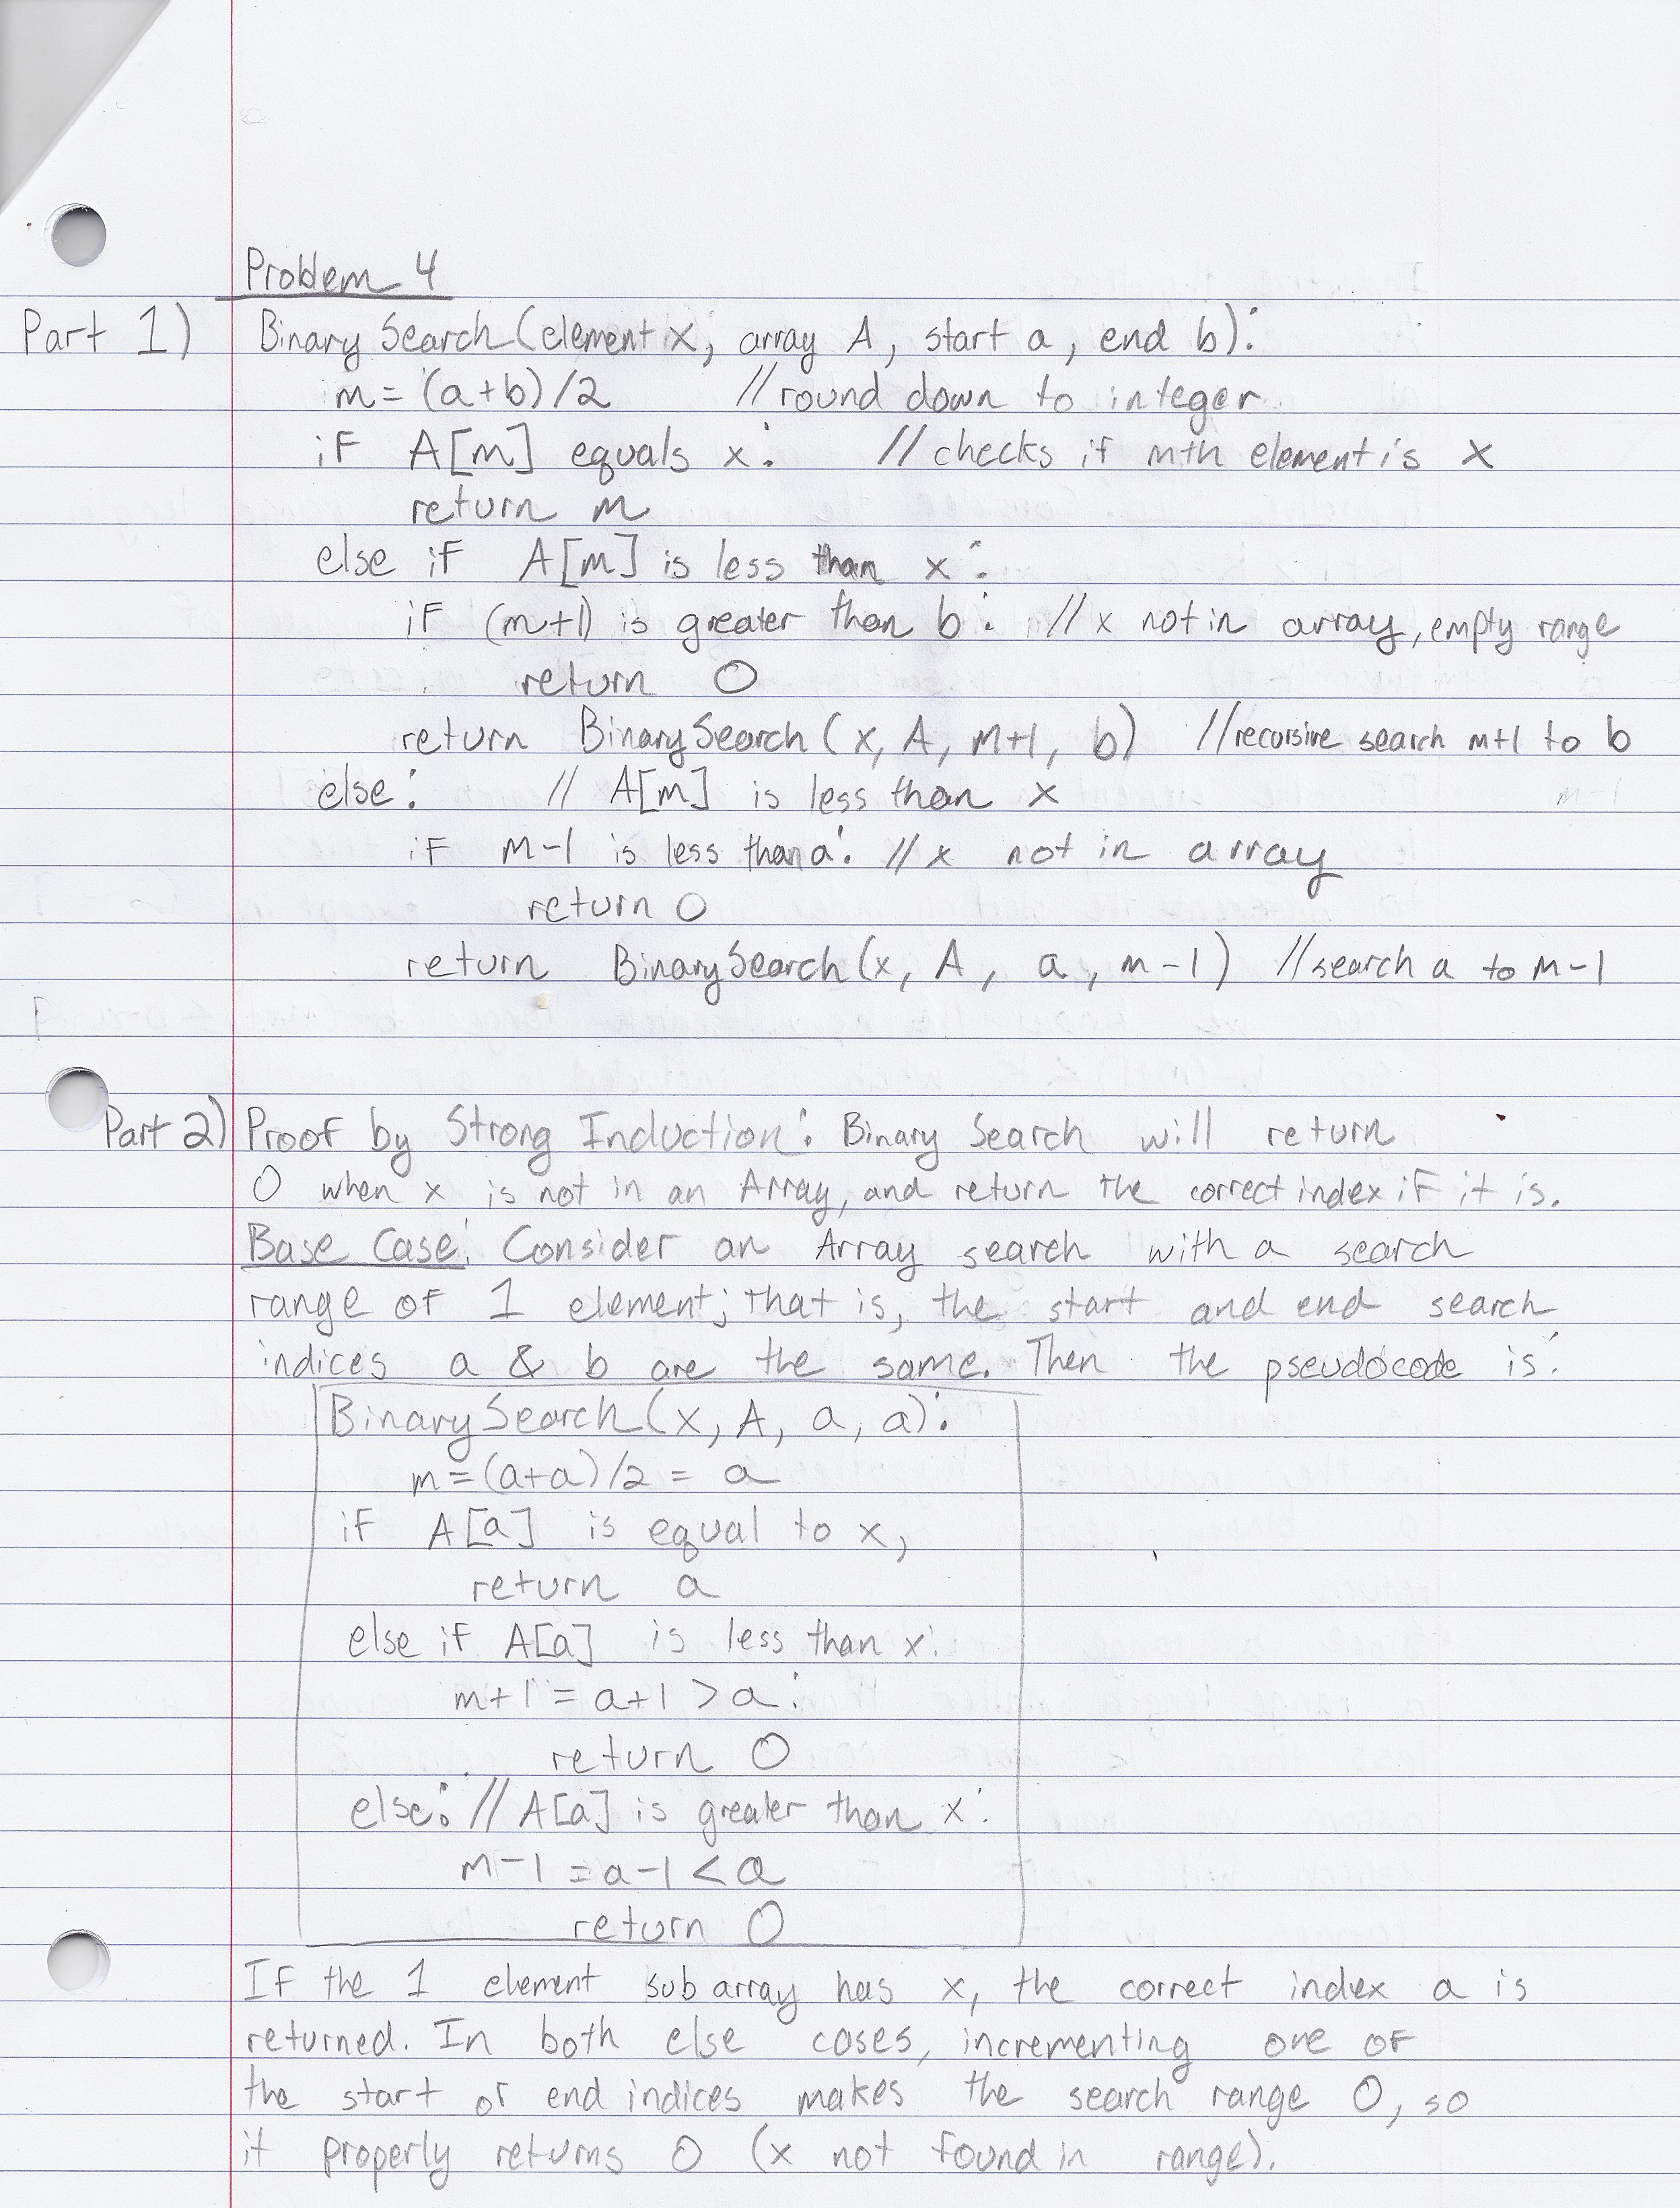 Problem 4
Part 1) Binary Search (element x, array A, start a, end b):
m = (a+b)/2 // round down to integer
if A[m] equals x: // checks if mth element is x
return m
else if A[m] is less than x:
if (m+1) is greater than b: // x not in array, empty range
return 0
return BinarySearch(x, A, m+1, b) // recursive search m+1 to b
else: // A[m] is less than x
if m-1 is less than a: // x not in array
return 0
return BinarySearch(x, A, a, m-1) // search a to m-1
Part 2) Proof by Strong Induction: Binary Search will return
0 when x is not in an Array, and return the correct index if it is.
Base Case: Consider an Array search with a search
range of 1 element; that is, the start and end search
indices a & b are the same. Then the pseudocode is:
BinarySearch(x, A, a, a):
m = (a+a)/2 = a
if A[a] is equal to x,
return a
else if A[a] is less than x:
m+1 = a+1 > a:
return 0
else: // A[a] is greater than x:
m-1 = a-1 < a
return 0
If the 1 element subarray has x, the correct index a is
returned. In both else cases, incrementing one of
the start or end indices makes the search range 0, so
it properly returns 0 (x not found in range).